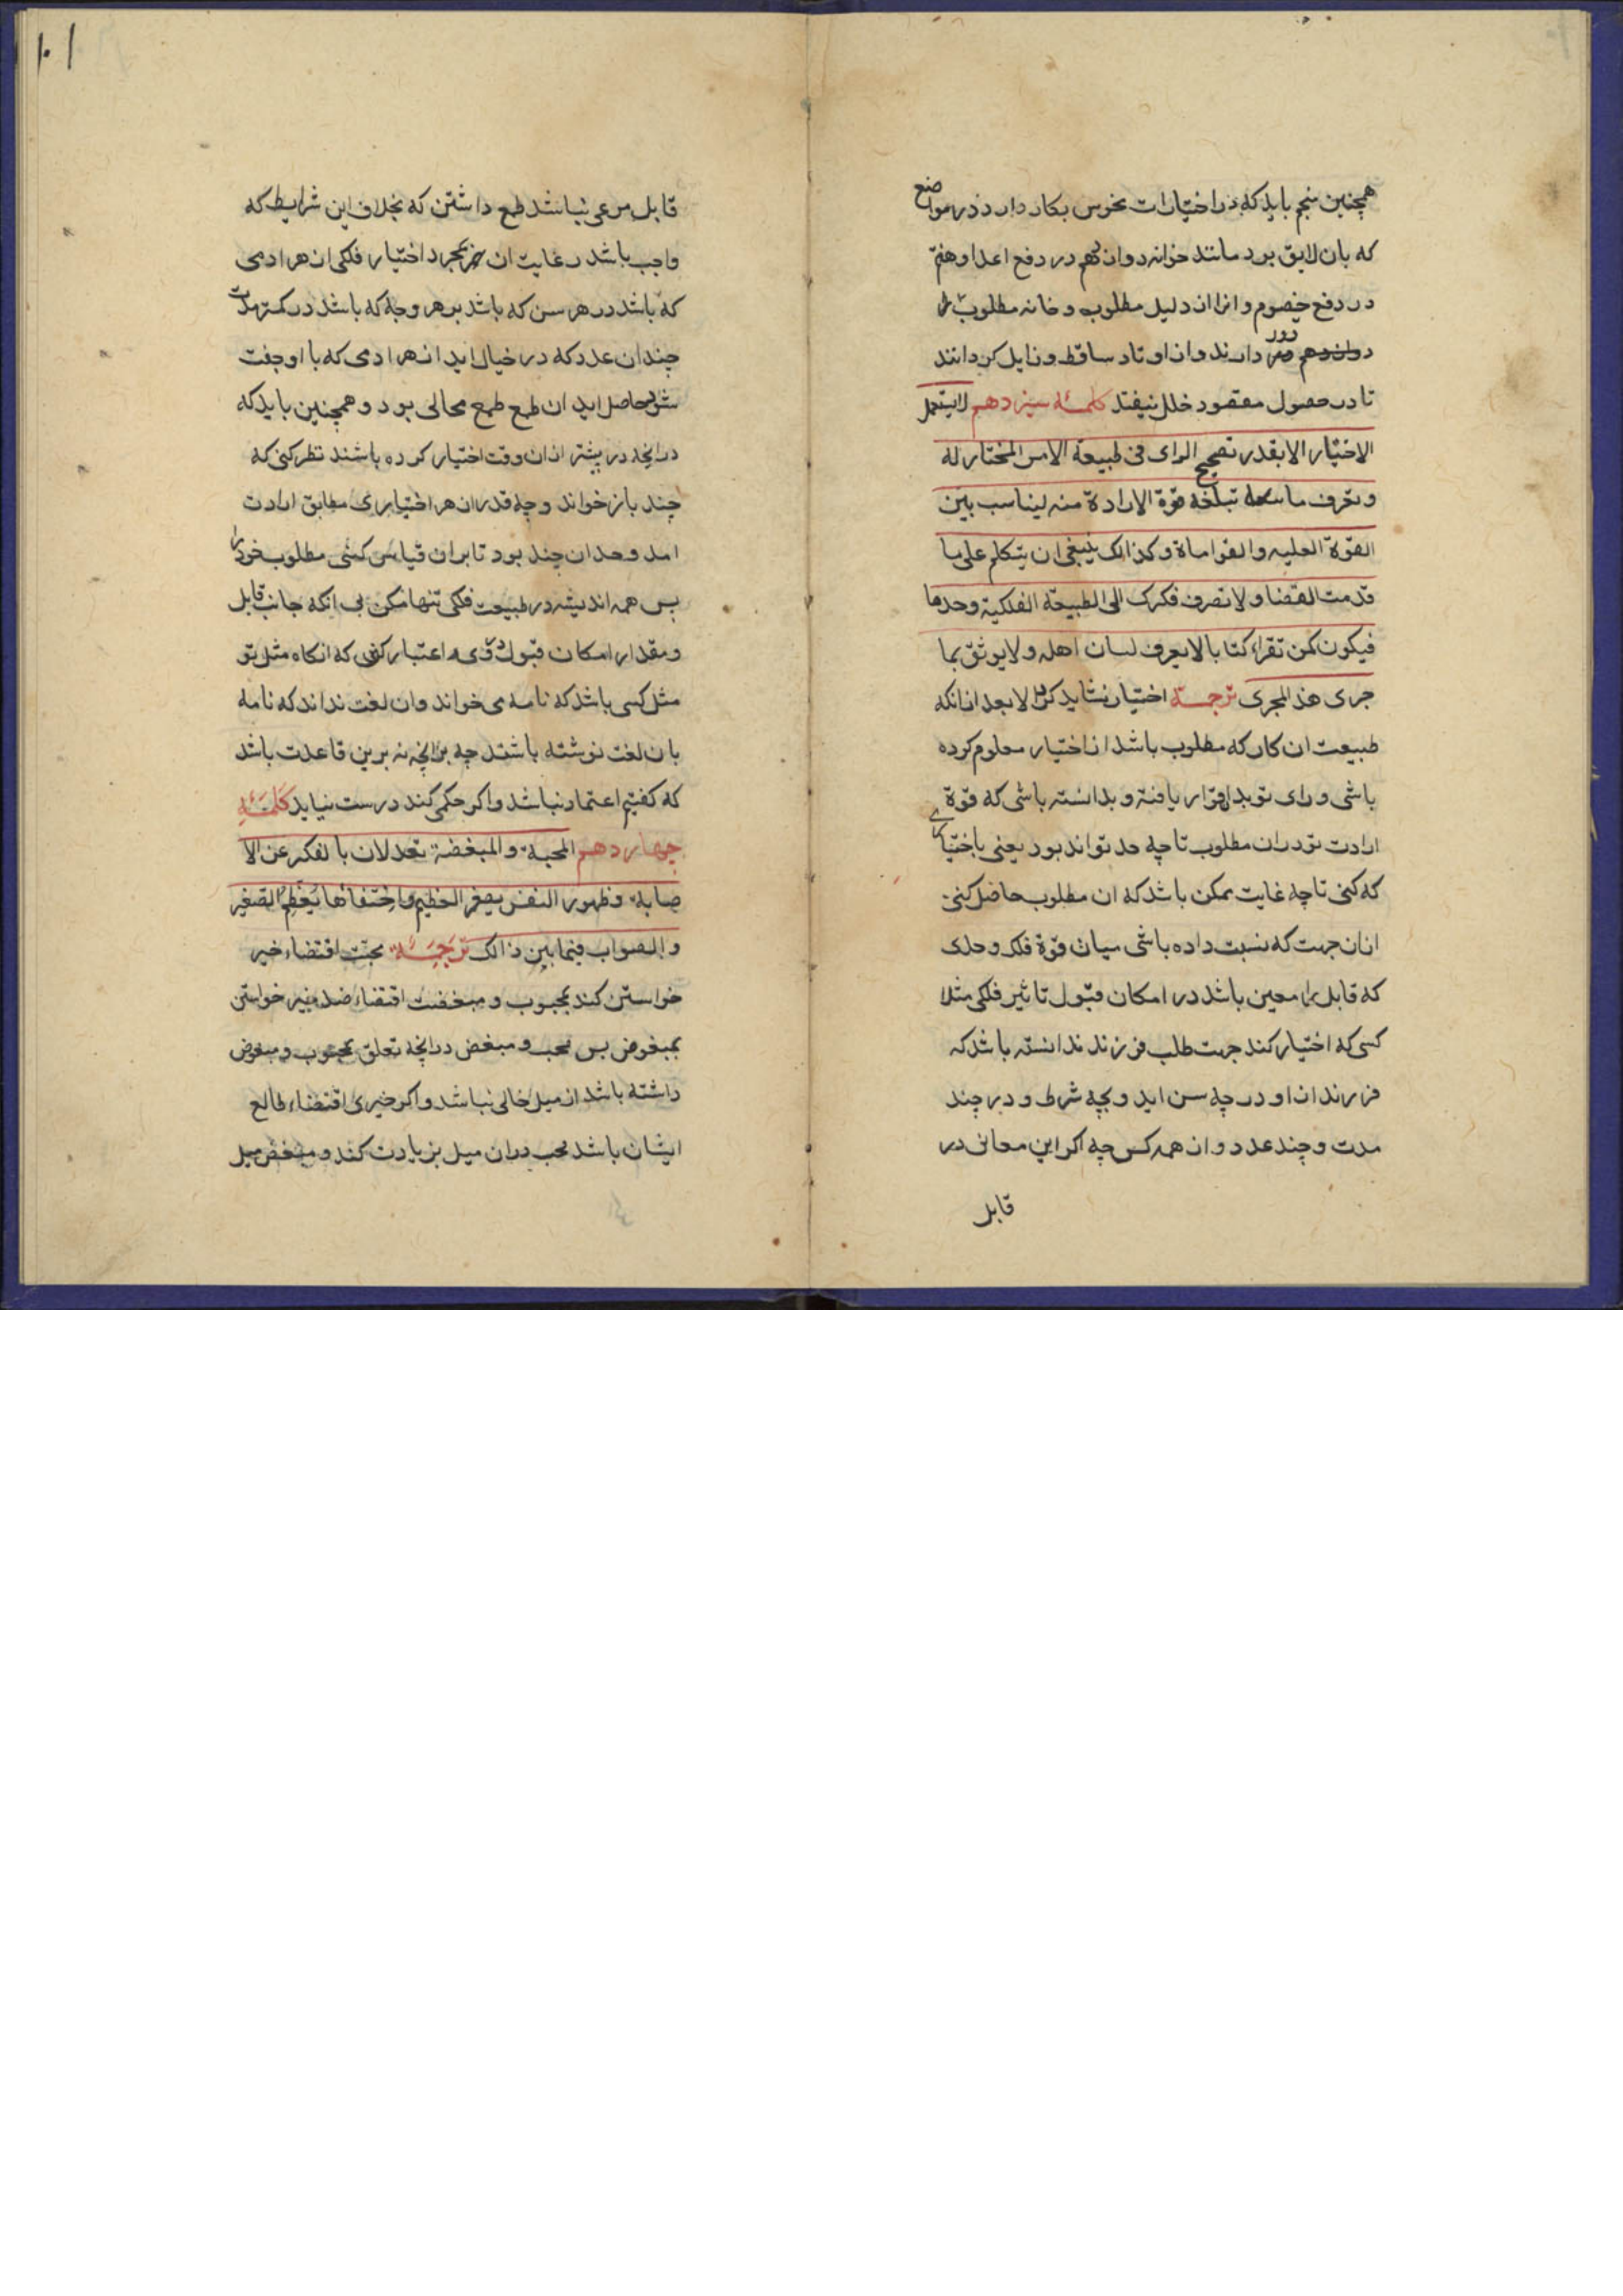 همچنین منجم باید که در اختیارات نحوس بکار دارد در مواضع
که بان لایق بود مانند خانه دوازدهم در دفع اعدا و هفتم
در دفع خصوم و انرا از دلیل مطلوب و خانه مطلوب
دور دارند و از اوتاد ساقط و زایل کردانند
تا در حصول مقصود خلل نیفتد کلمهٔ سیزدهم لایستعمل
الاختیار الا بقدر تصحیح الرای فی طبیعة الامر المختار له
و تعرف ما تبلغه قوة الارادة منه لیناسب بین
القوة العلیه والقوا ماة وکذالک ینبغی ان یتکلم علی ما
قدمت القضا ولا تصرف فکرک الی الطبیعة الفلکیة وحدها
فیکون کمن تقراء کتابا لا یعرف لسان اهله ولا یوثق بما
جری هذ المجری ترجمـة اختیار نشاید کرد الا بعد ازانکه
طبیعت ان کار که مطلوب باشد از اختیار معلوم کرده
باشی و رای تو بدان قرار یافته و بدانسته باشی که قوة
ارادت تو دران مطلوب تا چه حد تواند بود یعنی باختیاری
که کنی تا چه غایت ممکن باشد که ان مطلوب حاصل کنی
ازان جهت که نسبت داده باشی میان قوة فلک و حدی
که قابل را معین باشد در امکان قبول تاثیر فلکی مثلا
کسی که اختیار کند جهت طلب فرزند ندانسته باشد که
فرزند از او در چه سن اید و بچه شرط و در چند
مدت و چند عدد و از همه کس چه اکر این معانی در
قابل
۱۰۱
قابل مرعی نباشد طمع داشتن که بخلاف این شرایط که
واجب باشد رعایت ان بمجرد اختیار فلکی از هر ادمی
که باشد در هر سن که باشد بر هر وجه که باشد در کمتر مدت
چندان عدد که در خیال اید از هر ادمی که با او جفت
شود حاصل اید ان طمع طمع محالی بود و همچنین باید که
درانچه در پیشتر ازان وقت اختیار کرده باشند نظر کنی که
چند باز خواند و چه قدر از هر اختیاری مطابق ارادت
امد و حد ان چند بود تا بران قیاس کنی مطلوب خود را
پس همه اندیشه در طبیعت فلکی تنها مکن بی انکه جانب قابل
و مقدار امکان قبول وی اعتبار کنی که انکاه مثل تو
مثل کسی باشد که نامه می خواند وان لغت نداند که نامه
بان لغت نوشته باشند چه برانچه نه برین قاعدت باشد
که کفتیم اعتماد نباشد و اکر حکمی کند درست نیاید کلمهٔ
چهاردهم المحبة والمبغضة تعدلان بالفکر عن الا
صابة وظهور النفس یصغر العظیم واختفائها یُعَظِّمُ الصغیر
والصواب فیما بین ذالک ترجمة محبّت اقتضاء خیر
خواستن کند بمحبوب و مبغضت اقتضاء ضد خیر خواستن
بمبغوض پس محب و مبغض درانچه تعلق بمحبوب و مبغوض
داشته باشد از میل خالی نباشد و اکر خیری اقتضاء طالع
ایشان باشد محب دران میل بزیادت کند و مبغض میل